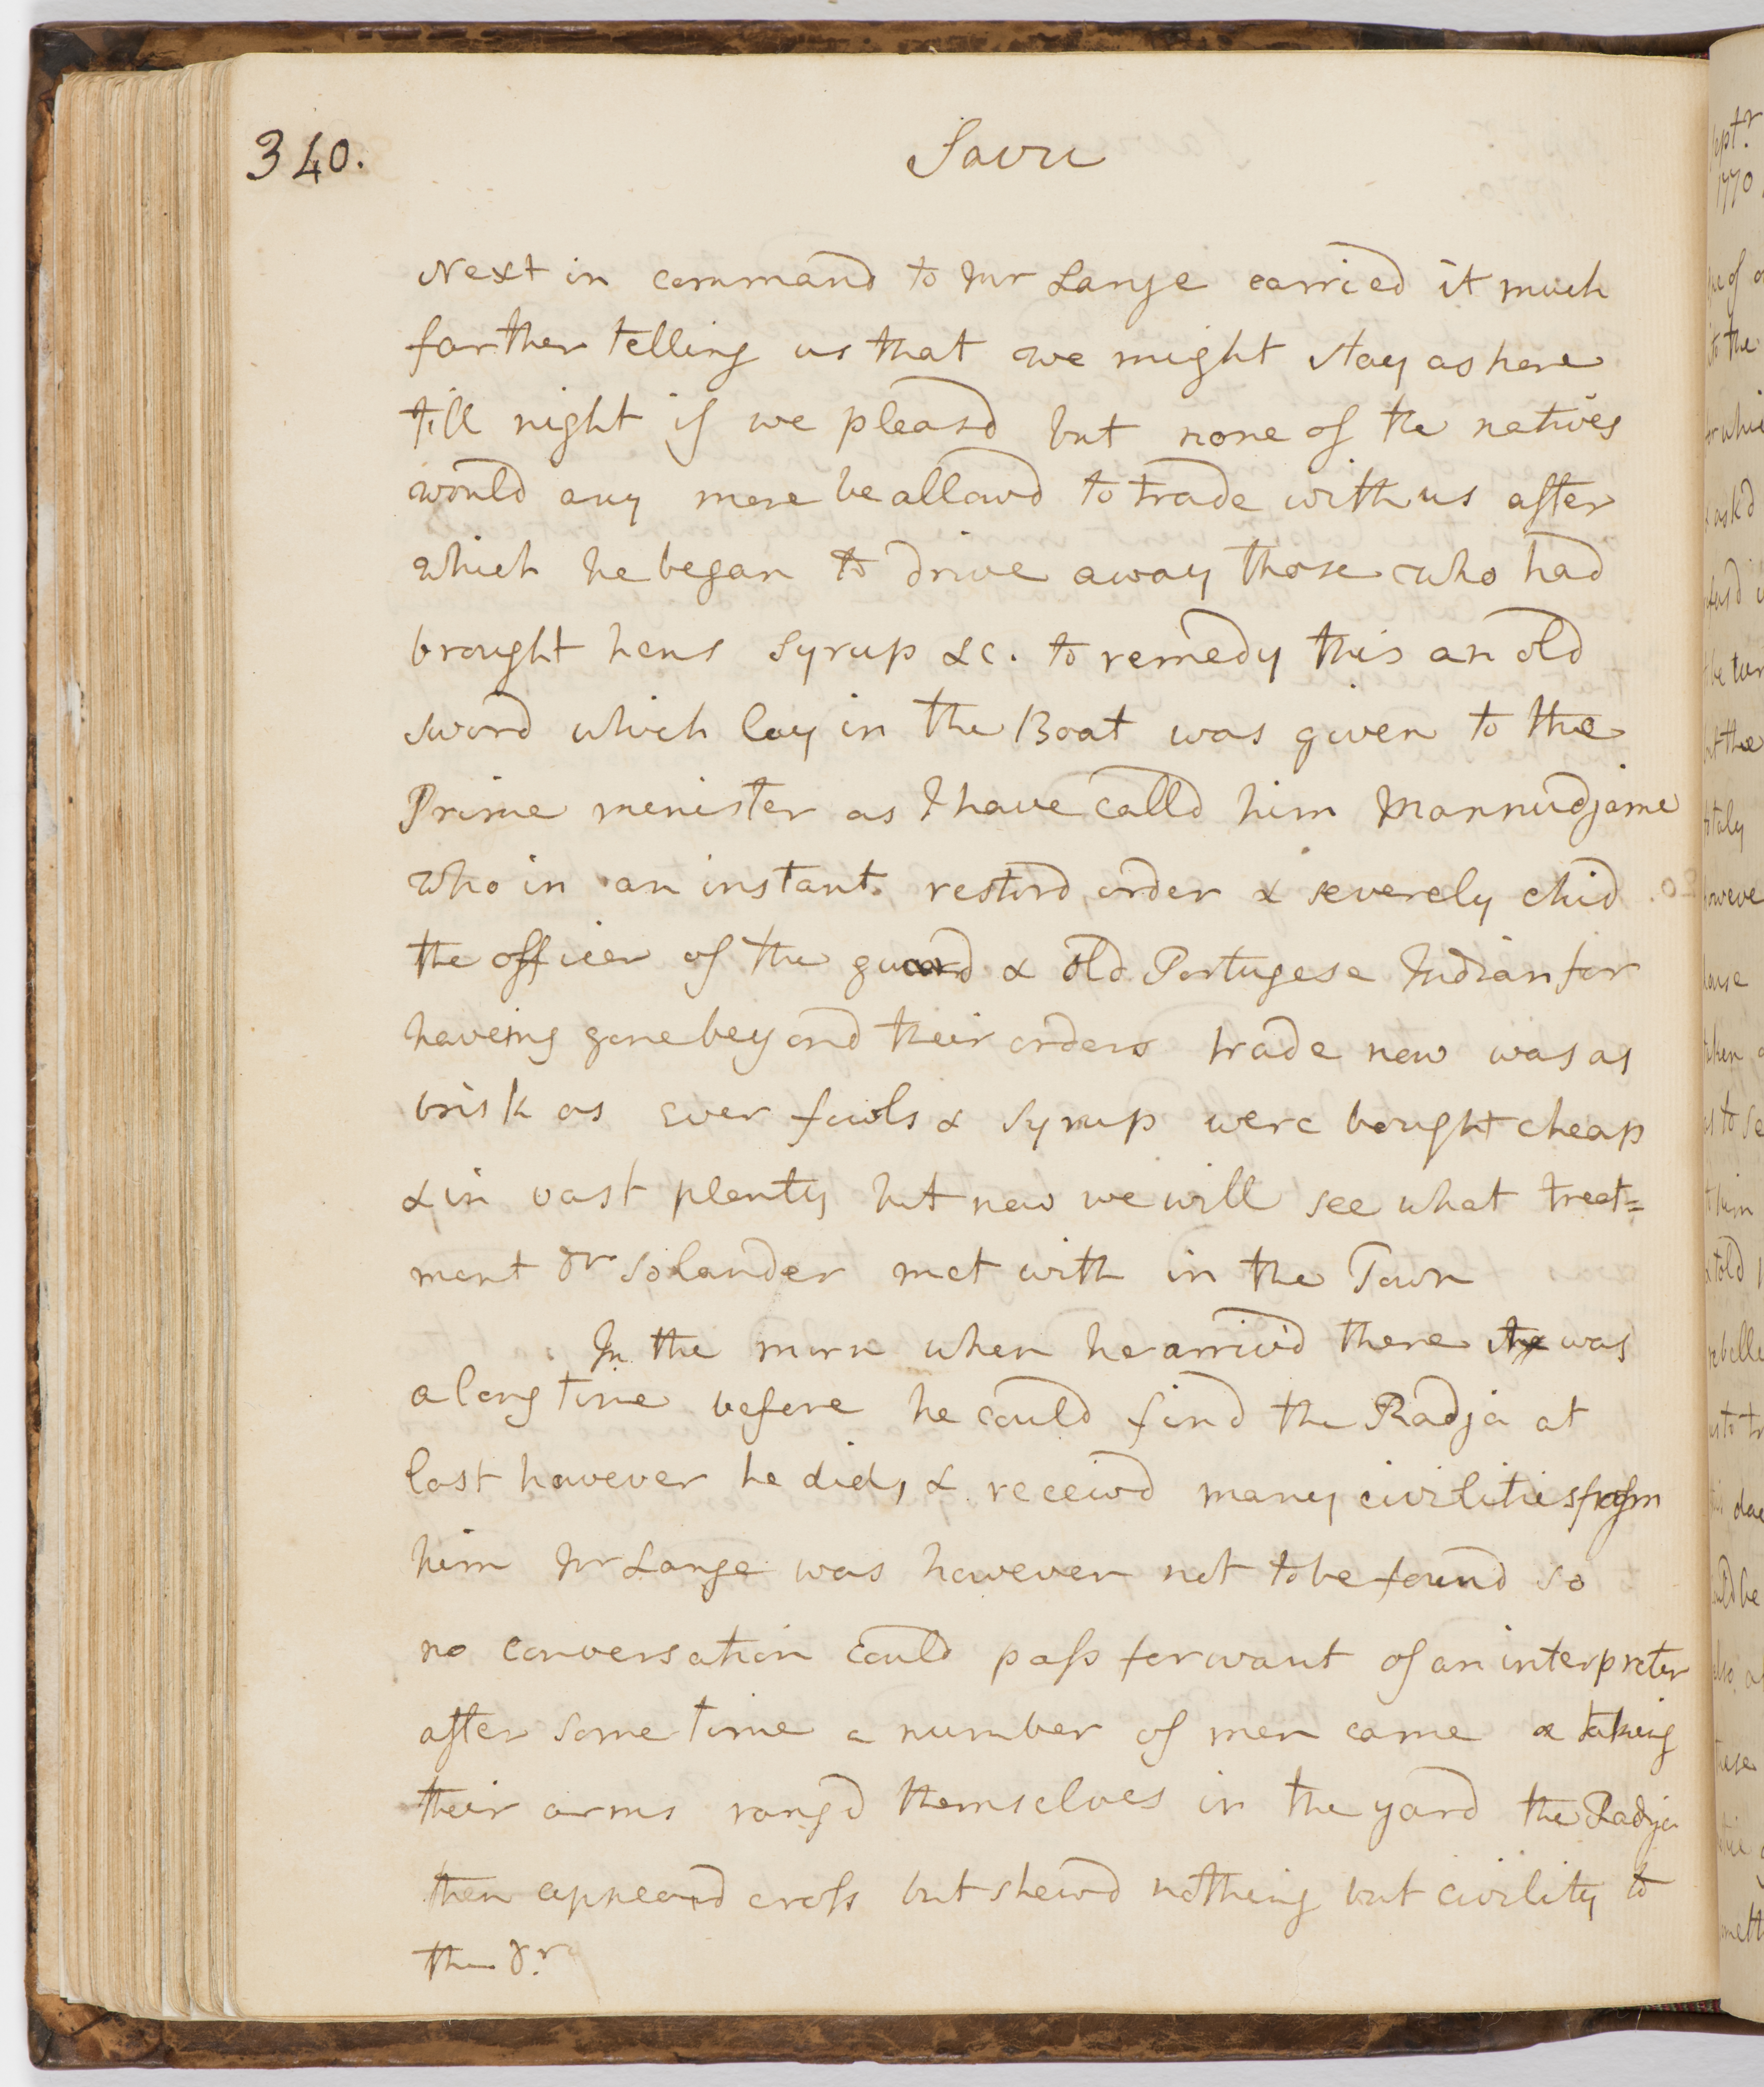 340.
Savu
Next in command to Mr Lange carried it much
farther telling us that we might stay ashore
till night if we pleasd but none of the natives
would any more be allowd to trade with us after
which he began to drive away those who had
brought hens syrup &c. to remedy this an old
sword which lay in the Boat was given to the
Prime menister as I have calld him Mannudjame
who in an instant restord order & severely chid
the officer of the guard & old Portugese Indian for
haveing gone beyond their orders trade now was as
brisk as ever fowls & syrup were bought cheap
& in vast plenty but now we will see what treat=
ment Dr Solander met with in the Town
In the morn when he arrivd there it was
a long time before he could find the Radja at
last however he did, & receivd many civilities from
him Mr Lange was however not to be found so
no conversation could pass for want of an interpreter
after some time a number of men came & taking
their arms rangd themselves in the yard the Radja
then appeard cross but shewd nothing but civility to
the Dr
Septr
1770